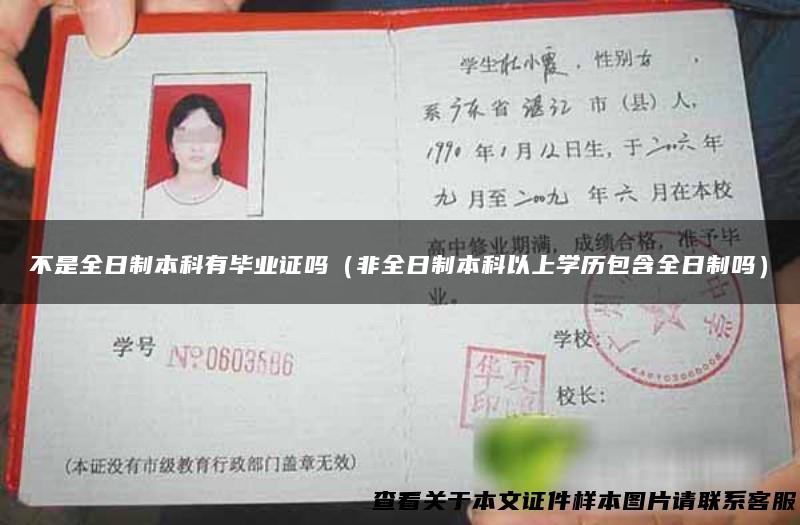 学生杜小霞，性别女，
系广东省湛江市（县）人，
1990年1月12日生，于二00六年
九月至二00九年六月在本校
高中修业期满，成绩合格，准予毕
业。
不是全日制本科有毕业证吗（非全日制本科以上学历包含全日制吗）
学号 №0603586
学校：
校长：
华夏
印
(本证没有市级教育行政部门盖章无效)
查看关于本文证件样本图片请联系客服